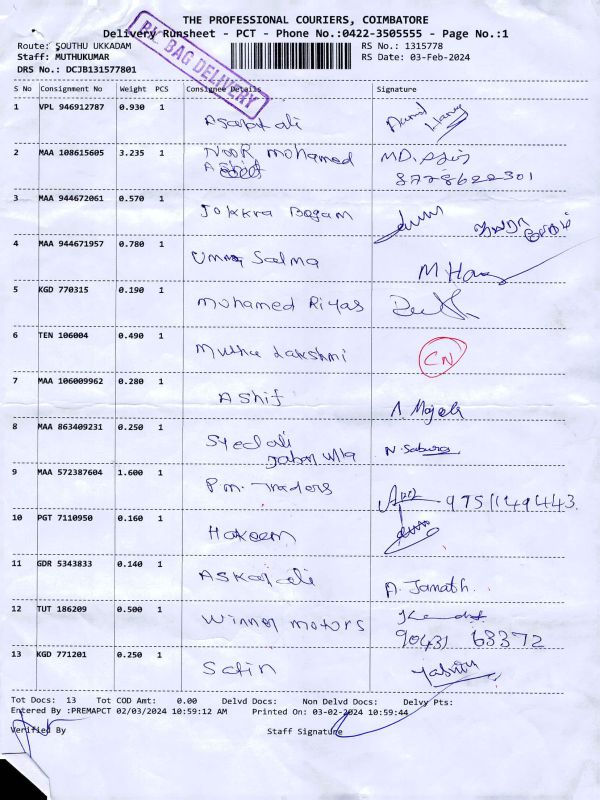 THE PROFESSIONAL COURIERS, COIMBATORE
Delivery Runsheet - PCT - Phone No.:0422-3505555 - Page No.:1
BAG DELIVERY
Route: SOUTHU UKKADAM RS No.: 1315778
Staff: MUTHUKUMAR RS Date: 03-Feb-2024
DRS No.: DCJB131577801
S No Consignment No Weight PCS Consignee Details Signature
1 VPL 946912787 0.930 1 ali
2 MAA 108615605 3.235 1 Noor mohamed MD.
8778622301
3 MAA 944672061 0.570 1 Jokkra Begam
4 MAA 944671957 0.780 1 Umma Salma M
5 KGD 770315 0.190 1 mohamed Riyas
6 TEN 106004 0.490 1 Muthu Lakshmi CN
7 MAA 106009962 0.280 1 Ashif
8 MAA 863409231 0.250 1 Syed ali N. Sabura
9 MAA 572387604 1.600 1 P.m. Traders 9751149443.
10 PGT 7110950 0.160 1 Hakeem
11 GDR 5343833 0.140 1 Askar ali A. Janath.
12 TUT 186209 0.500 1 Winner motors
90431 63372
13 KGD 771201 0.250 1
Tot Docs: 13 Tot COD Amt: 0.00 Delvd Docs: Non Delvd Docs: Delvy Pts:
Entered By :PREMAPCT 02/03/2024 10:59:12 AM Printed On: 03-02-2024 10:59:44
Verified By Staff Signature